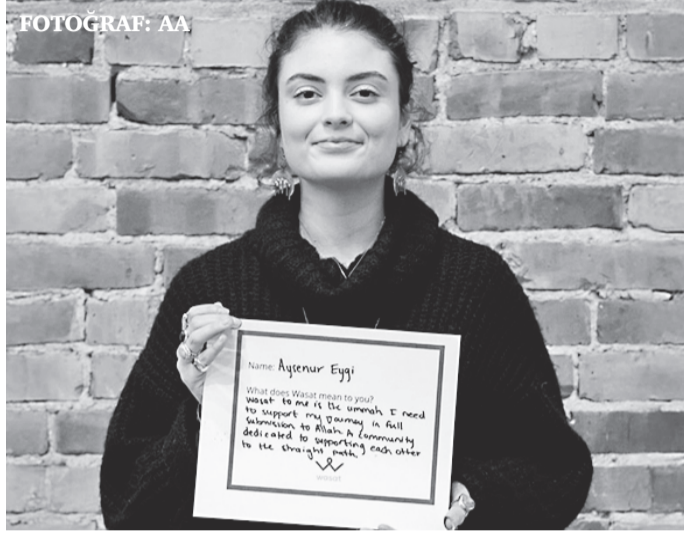 FOTOĞRAF: AA
Name: Ayşenur Eygi
What does Wasat mean to you?
wasat to me is the ummah I need
to support my journey in full
submission to Allah. A community
dedicated to supporting each other
to the straight path.
wasat